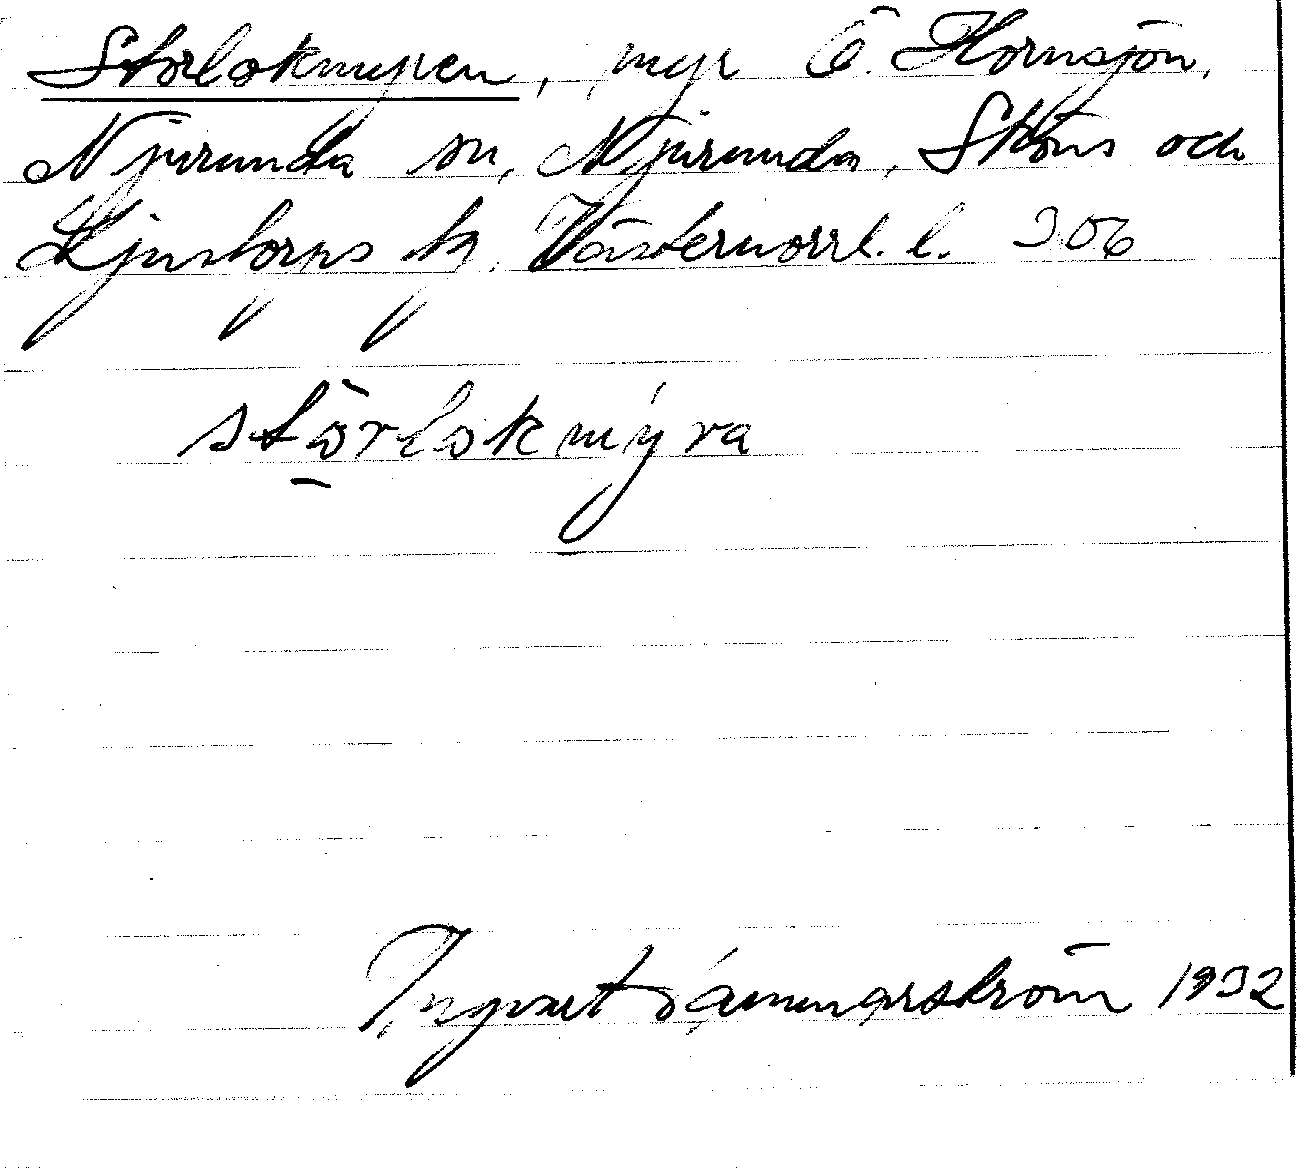 Storlokmyren, myr Ö. Hornsjön,
Njurunda sn, Njurunda, Sköns och
Ljustorps tg. Västernorrl. l. 306
stōrlokmýra
Ingvart Sämmarström 1932